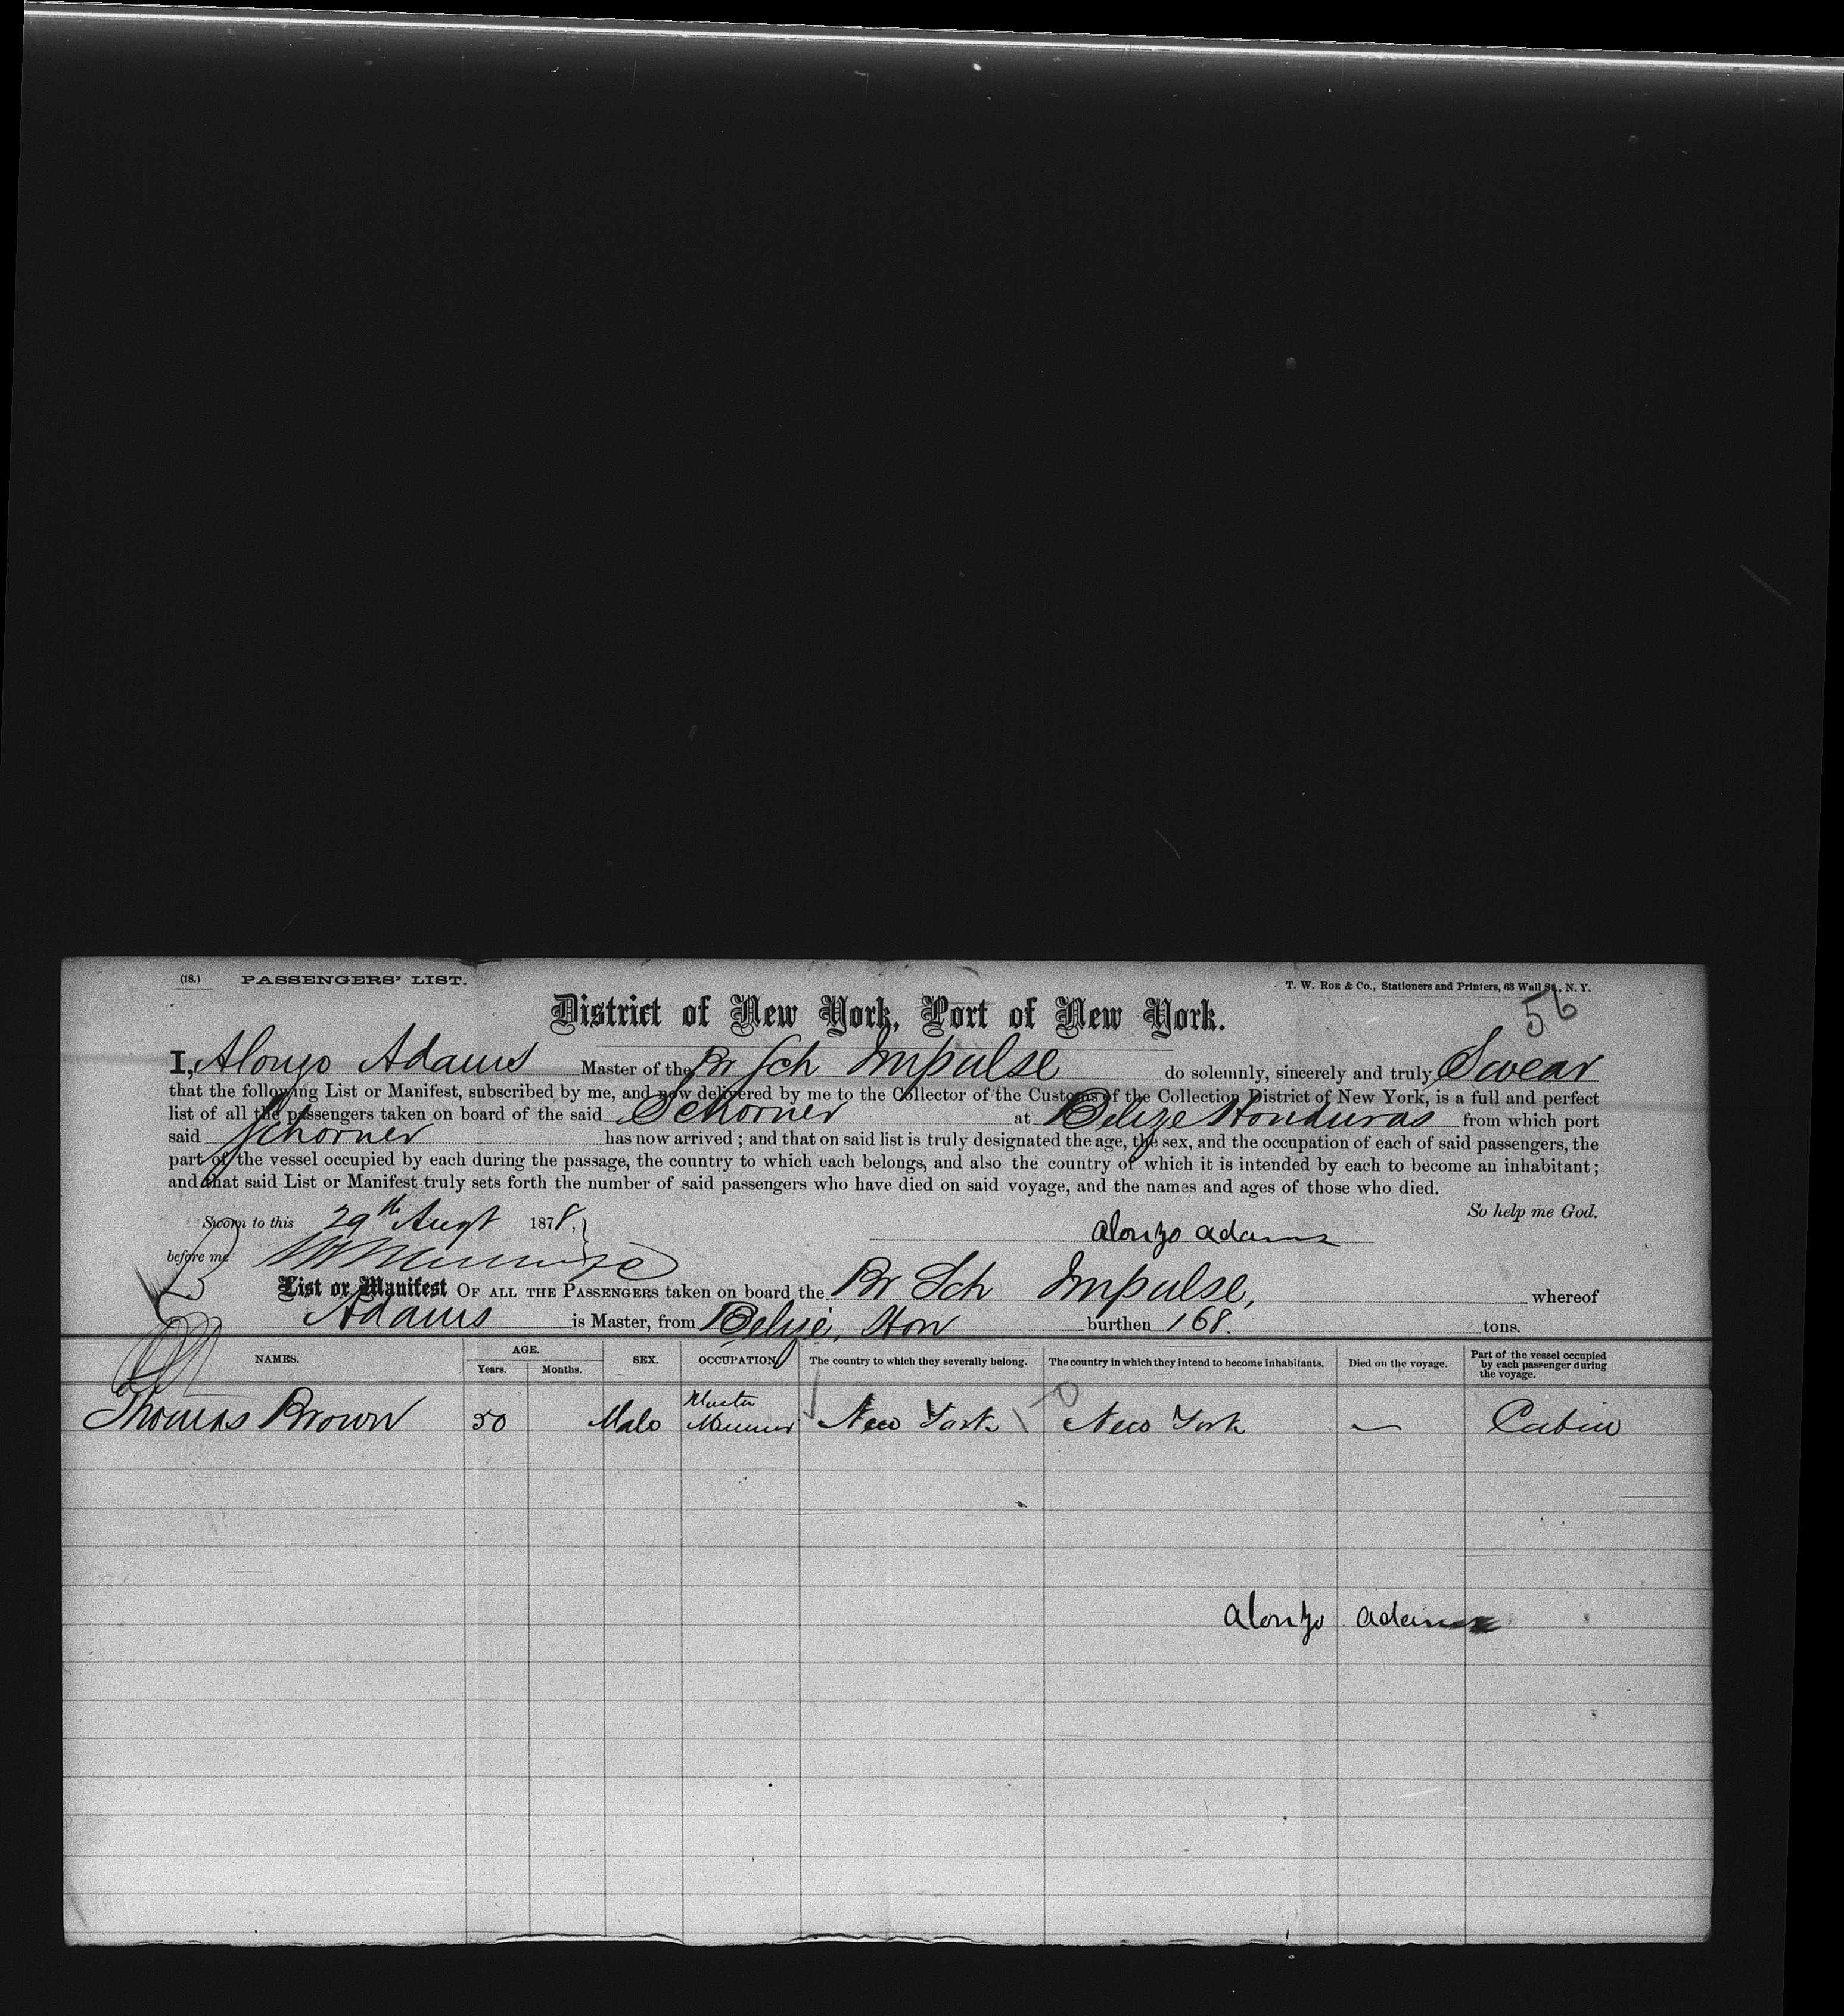 (18.) PASSENGERS' LIST.
T. W. Roe & Co., Stationers and Printers, 63 Wall St., N. Y.
56
District of New York, Port of New York.
I, Alonzo Adams Master of the Br Sch Impulse do solemnly, sincerely and truly Swear
that the following List or Manifest, subscribed by me, and now delivered by me to the Collector of the Customs of the Collection District of New York, is a full and perfect
list of all the passengers taken on board of the said Schorner at Belize Honduras from which port
said Schorner has now arrived ; and that on said list is truly designated the age, the sex, and the occupation of each of said passengers, the
part of the vessel occupied by each during the passage, the country to which each belongs, and also the country of which it is intended by each to become an inhabitant ;
and that said List or Manifest truly sets forth the number of said passengers who have died on said voyage, and the names and ages of those who died.
So help me God.
Sworn to this 29th Augt 1878,
alonzo adams
before me
List or Manifest OF ALL THE PASSENGERS taken on board the Br Sch Impulse, whereof
Adams is Master, from Belize, Hon burthen 168. tons.
NAMES. AGE. Years. Months. SEX. OCCUPATION. The country to which they severally belong. The country in which they intend to become inhabitants. Died on the voyage. Part of the vessel occupied by each passenger during the voyage.
Thomas Brown 50 Male Master Marriner New York New York — Cabin
alonzo adams